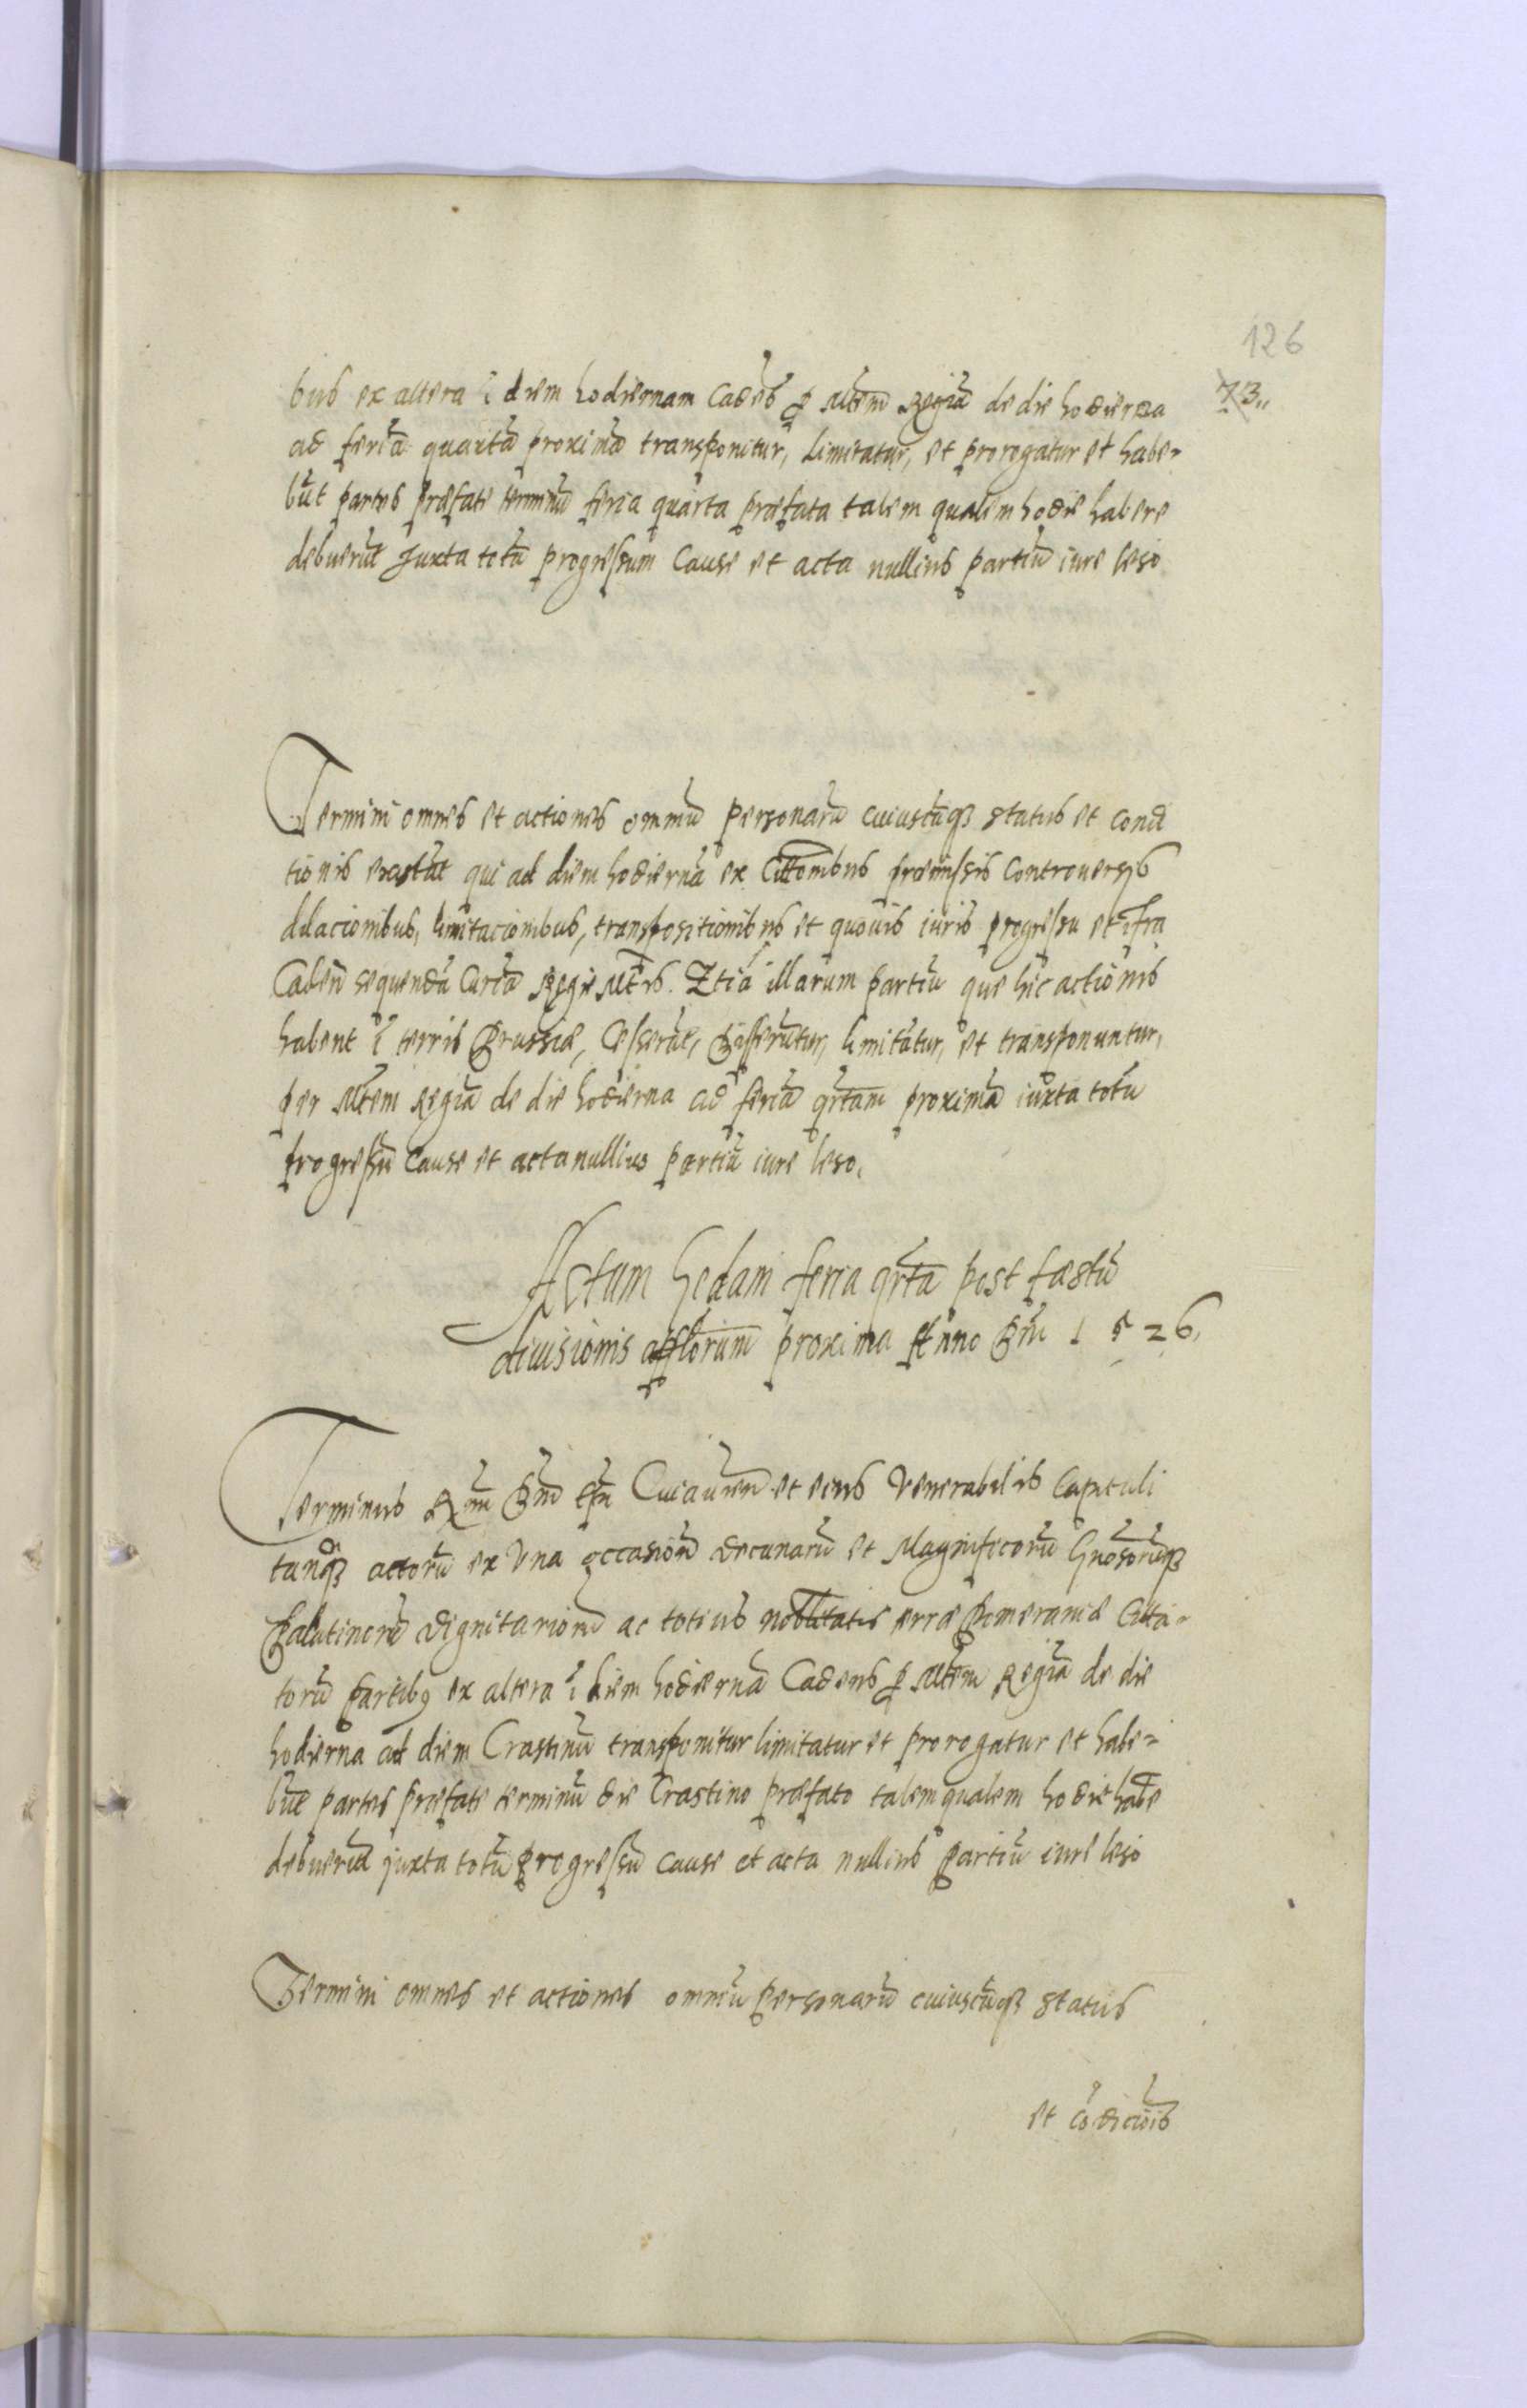 126
73,,
bus ex altera ĩ diem hodiernam Cadēs ꝑ Mtem Regiā de die hodierna
ad feriā quartā proximā transponitur, Limitatur, et prorogatur et habe=
būt partes præfate terminū feria quarta præfata talem qualem hodie habere
debuerūt Juxta totū progressum Cause et acta nullius partiū iure leso
Termini omnes et actiones omniū personarū cuiuscūqꝫ status et condi
tionis qui ad diem hodiernā ex Cittōnibus præmissis Controversijs
dilacionibus, limitacionibus, transpositionibus et quovis iuris progressu et ĩfra
Cadeñ sequendā Curiā Regie Mtis. Etiā illarum partiū que hic actiones
habent ĩ terris Prussiæ, Cesserūt, Differūtur, limitātur, et transponuntur,
per Mtem Regiā de die hodierna ad feriā qrtam proximā iuxta totū
progressū Cause et acta nullius partiū iure leso.
Actum Gedani feria qrta post fæstū
divisionis applorum proxima Anno Dñi 1526,
Terminus Rñi Dñi Epi Cuiavieñ et eius Venerabilis Capituli
tanqꝫ actorū ex Una occasione decimarū et Magnificorū Gnosorūqꝫ
Palatinorū Dignitariorū ac totius nobilitatis terræ Pomeraniæ Citta=
torū partibꝯ ex altera ĩ diem hodiernā Cadens ꝑ Mtem Regiā de die
hodierna ad diem Crastinū transponitur limitatur et prorogatur et habe=
būt partes præfate terminū die Crastino præfato talem qualem hodie habē
debuerūt juxta totū progressū cause et acta nullius Partiū iure leso
Termini omnes et actiones omniū personarū cuiuscūqꝫ status
et cõdiciõis